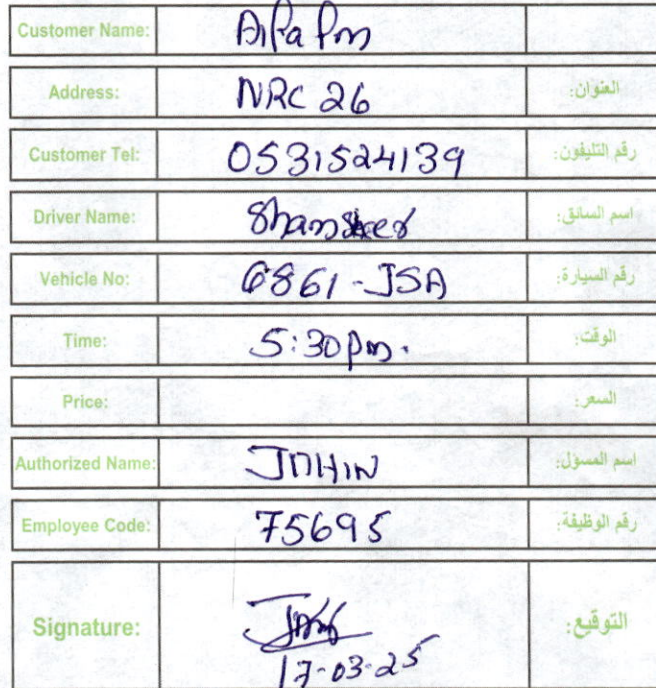 Customer Name:
Address: NRC 26 العنوان:
Customer Tel: 0531524139 رقم التليفون:
Driver Name: اسم السائق:
Vehicle No: 6861-JSA رقم السيارة:
Time: 5:30pm. الوقت:
Price: السعر:
Authorized Name: اسم المسؤل:
Employee Code: 75695 رقم الوظيفة:
Signature: التوقيع:
17-03-25